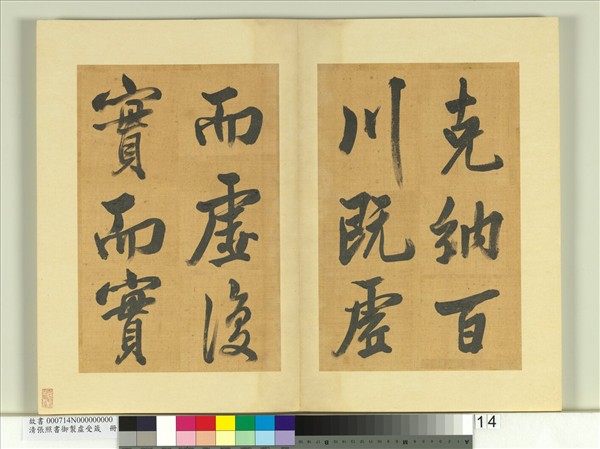 克納百
川既虛
而虛復
實而實
故書 000714N000000000
清張照書御製虛受箴 冊
14